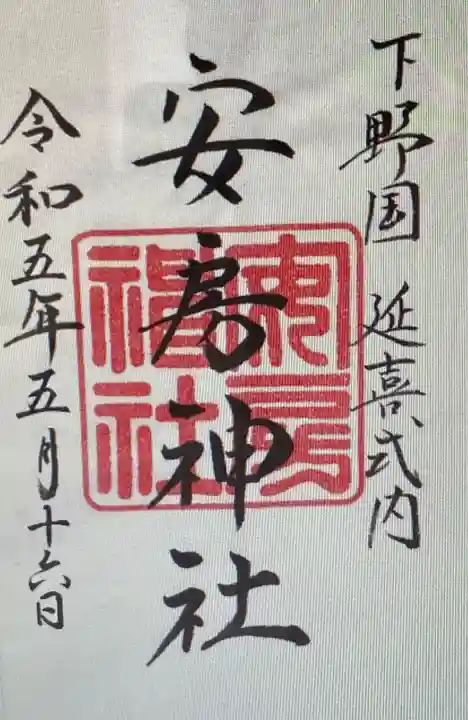 下野国 延喜式内
安房神社
安房
神社
令和五年五月十六日